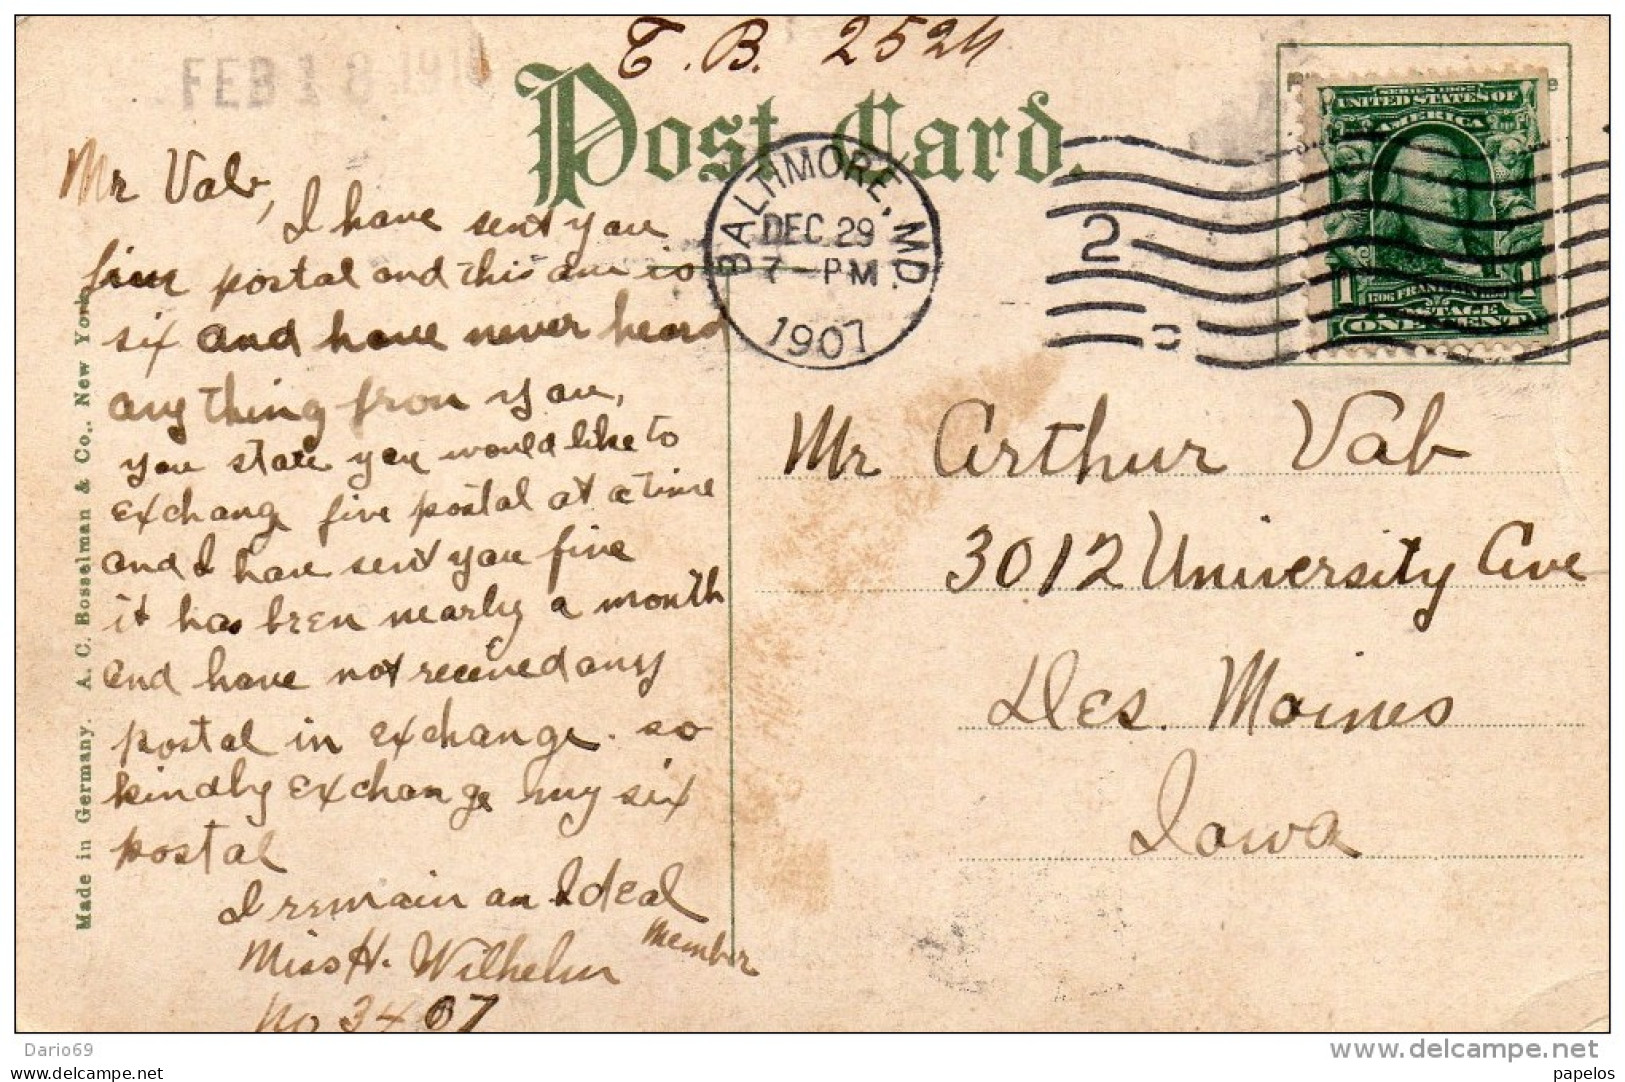 T. B. 2524
FEB 18 191
Post Card.
SERIES 1902
UNITED STATES OF
AMERICA
1706 FRANKLIN
POSTAGE
1 ONE CENT 1
BALTIMORE, MD.
DEC 29
7-PM
1907
2
Mr Vab,
I have sent you
five postal and this one is
six and have never heard
any thing from you,
you state you would like to
exchang five postal at a time
and I have sent you five
it has been nearly a month
and have not received any
postal in exchange. so
kindly exchange my six
postal
I remain an Ideal
Member
Miss H. Wilhelm
No 3407
Mr Arthur Vab
3012 University Ave
Des. Moines
Iowa
Made in Germany. A. C. Bosselman & Co., New York
Dario69
www.delcampe.net
papelos